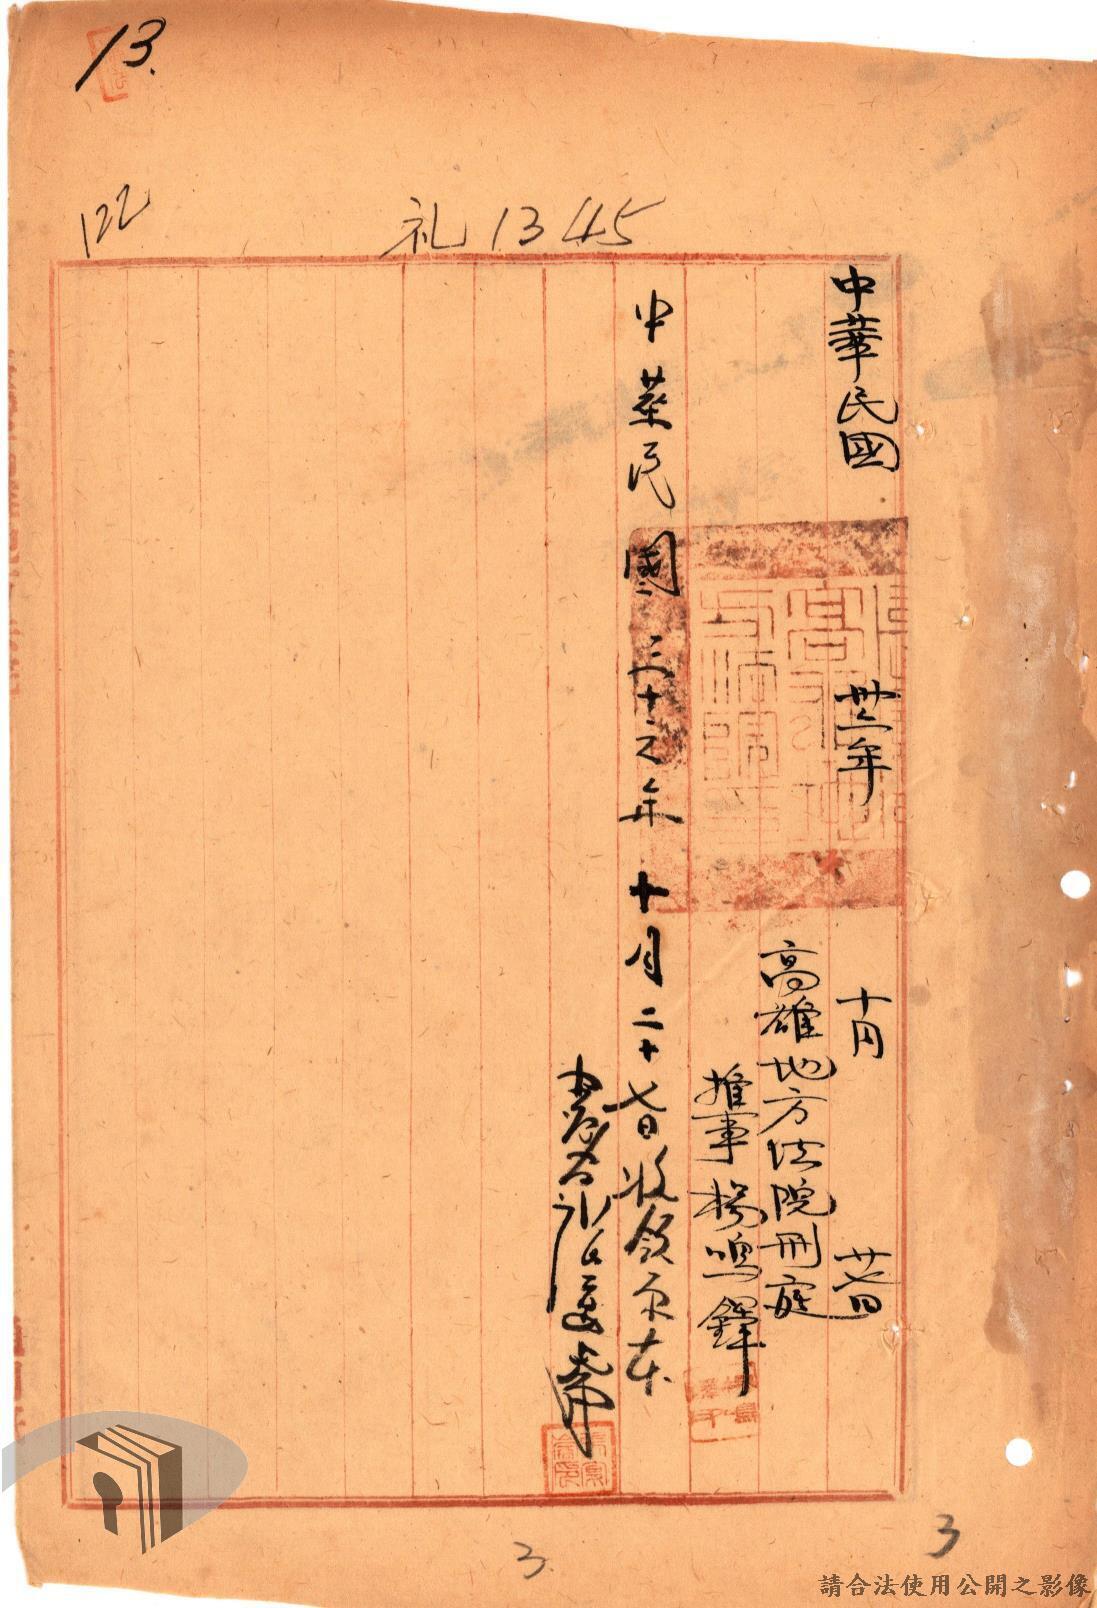 13.
122
礼1345
中華民國 卅六年 十月 廿七日
高雄地方法院刑庭
推事 楊鳴鐸
中華民國三十六年十月二十七日收領原本
書記官
3
3.
請合法使用公開之影像